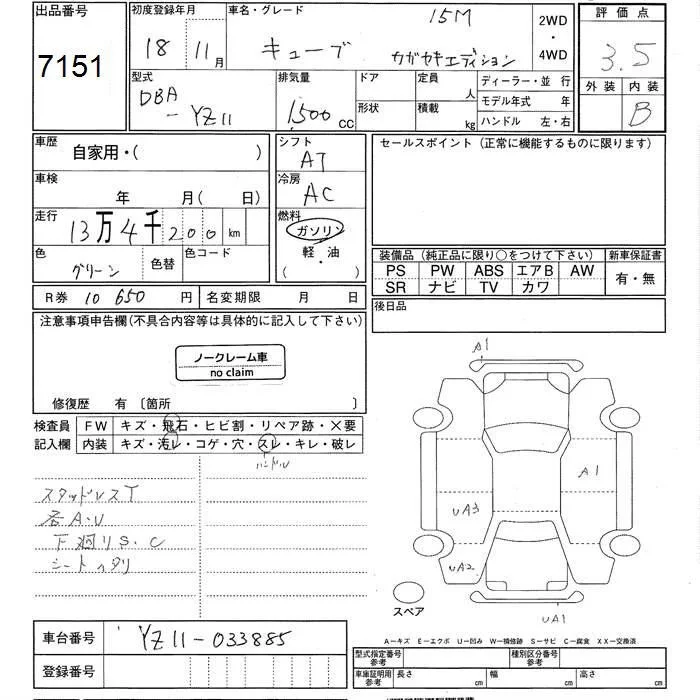 出品番号 初度登録年月 車名・グレード 15M 2WD・4WD 評価点
7151 18年 11月 キューブ カガヤキエディション 3.5
外装 内装 B
型式 DBA-YZ11 排気量 1500cc ドア 定員 人 ディーラー・並行
形状 積載 kg モデル年式 年
ハンドル 左・右
車歴 自家用・( ) シフト AT セールスポイント(正常に機能するものに限ります)
車検 年 月(日) 冷房 AC
走行 13万4千200km 燃料 ガソリン・軽・油 ( )
色 グリーン 色替 色コード
装備品(純正品に限り○をつけて下さい) 新車保証書
PS PW ABS エアB AW 有・無
SR ナビ TV カワ
R券 10650円 名変期限 月 日 後日品
注意事項申告欄(不具合内容等は具体的に記入して下さい)
ノークレーム車
no claim
修復歴 有 〔箇所 〕
検査員 FW キズ・飛石・ヒビ割・リペア跡・×要
記入欄 内装 キズ・汚レ・コゲ・穴・スレ・キレ・破レ
ハンドル
スタッドレスT
各A・U
下廻りS・C
シートヘタリ
A1
A1
UA3
UA2
UA1
スペア
A-キズ E-エクボ U-凹み W-補修跡 S-サビ C-腐食 XX-交換済
車台番号 YZ11-033885
登録番号
型式指定番号 参考 種別区分番号 参考
車庫証明用 参考 長さ cm 幅 cm 高さ cm